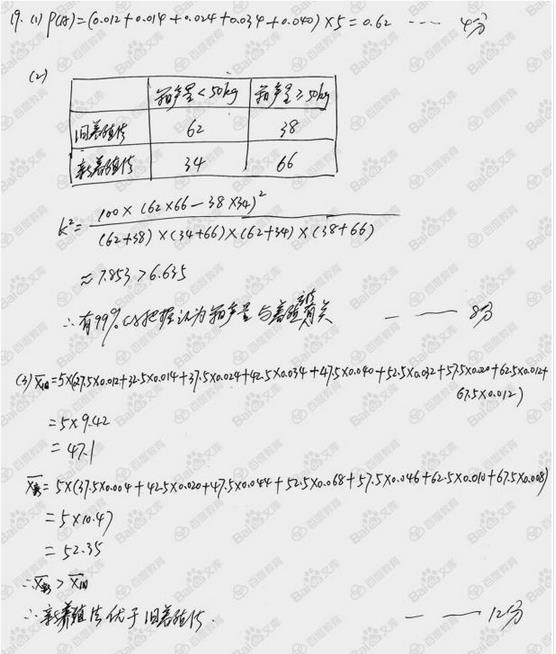 19. (1) P(A)=(0.012+0.014+0.024+0.034+0.040)×5=0.62 ---- 4分
(2)
箱产量<50kg 箱产量≥50kg
旧养殖法 62 38
新养殖法 34 66
K²= 100×(62×66-38×34)²
(62+38)×(34+66)×(62+34)×(38+66)
≈7.853>6.635
∴有99%的把握认为箱产量与养殖法有关 — — 8分
(3) x̄旧=5×(27.5×0.012+32.5×0.014+37.5×0.024+42.5×0.034+47.5×0.040+52.5×0.032+57.5×0.020+62.5×0.012+
67.5×0.012)
=5×9.42
=47.1
x̄新=5×(37.5×0.004+42.5×0.020+47.5×0.044+52.5×0.068+57.5×0.046+62.5×0.010+67.5×0.008)
=5×10.47
=52.35
∴x̄新>x̄旧
∴新养殖法优于旧养殖法. — — 12分
Bai百度文库
百度教育